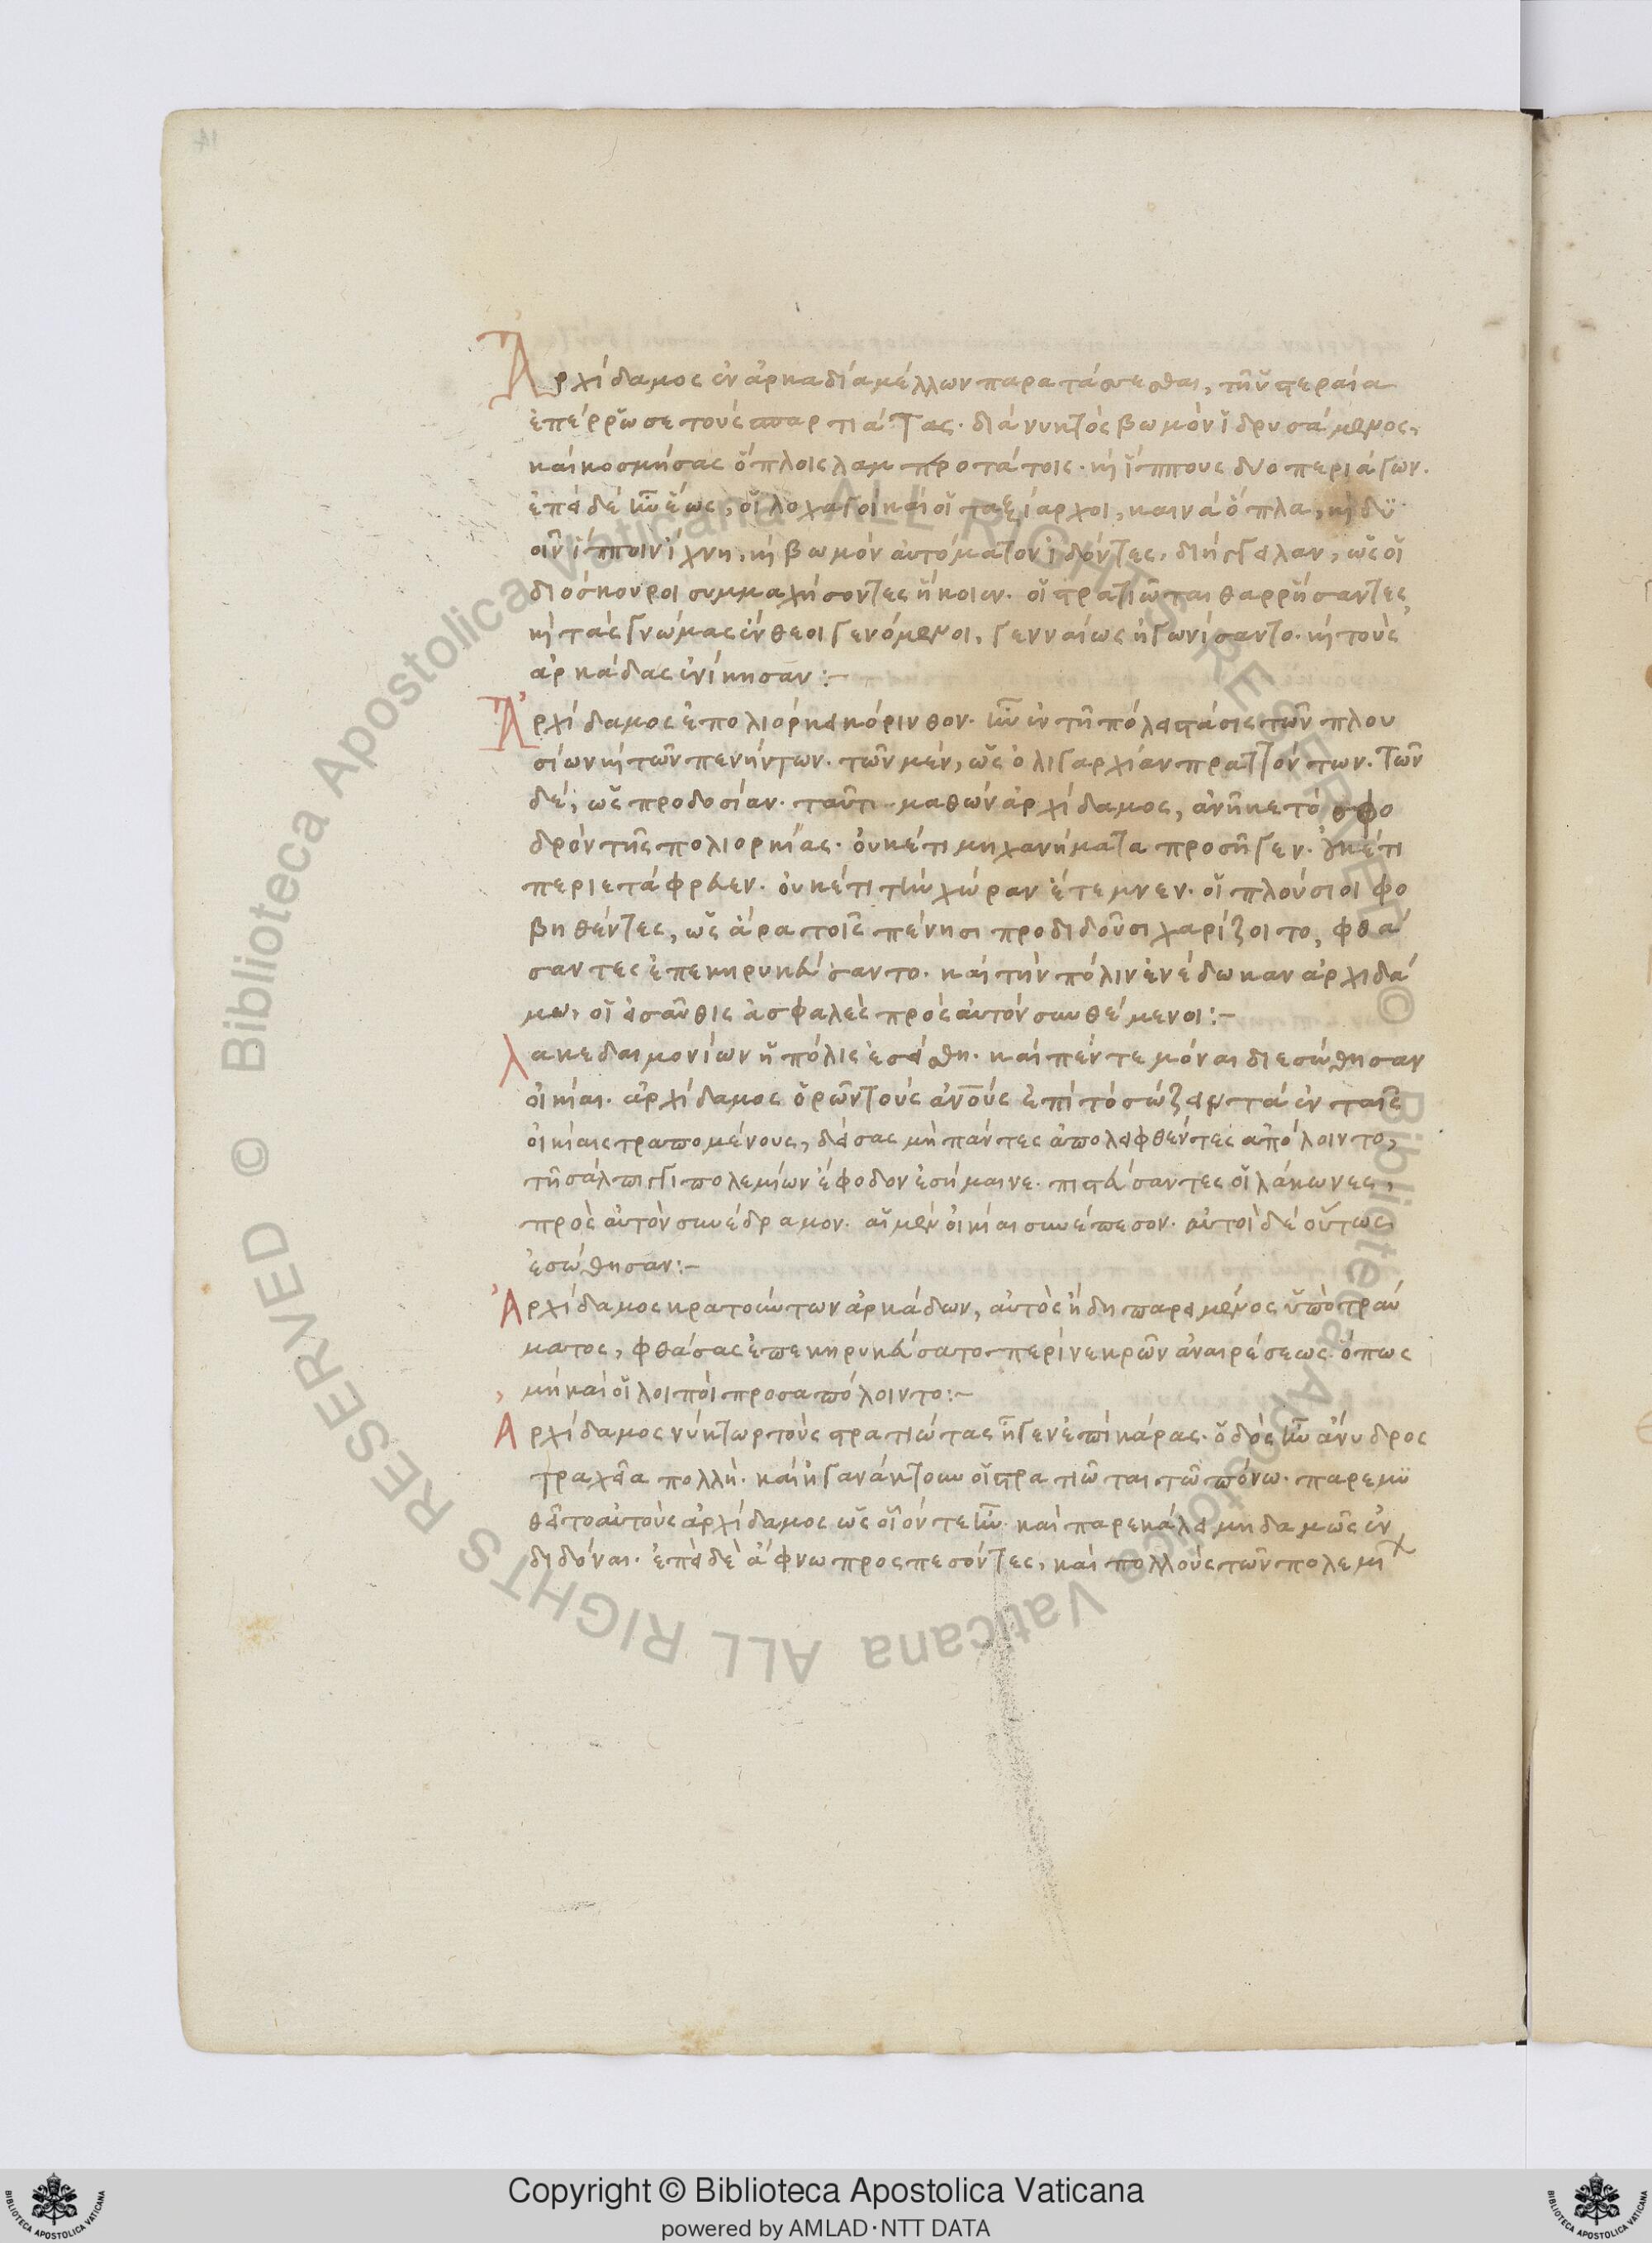 Ἀρχίδαμος ἐν ἀρκαδία μέλλων παρατάσσεσθαι, τῆ ὑστεραία
ἐπέρρωσε τοὺς σπαρτιάτας. διὰ νυκτὸς βωμὸν ἱδρυσάμενος,
καὶ κοσμήσας ὅπλοις λαμπροτάτοις. καὶ ἵππους δύο περιάγων.
ἐπεὶ δὲ ἦν ἕως, οἱ λοχαγοὶ καὶ οἱ ταξίαρχοι, καινὰ ὅπλα, καὶ δυ
οῖν ἵπποιν ἴχνη, καὶ βωμὸν αὐτόματον ἰδόντες, διήγγειλαν, ὡς οἱ
διόσκουροι συμμαχήσοντες ἥκοιεν. οἱ στρατιῶται θαρρήσαντες
καὶ τὰς γνώμας ἔνθεοι γενόμενοι, γενναίως ἠγωνίσαντο. καὶ τοὺς
ἀρκάδας ἐνίκησαν:-
Ἀρχίδαμος ἐπολιόρκει κόρινθον. ἦν ἐν τῆ πόλει στάσις τῶν πλου
σίων καὶ τῶν πενήντων. τῶν μὲν, ὡς ὀλιγαρχίαν πραττόντων. τῶν
δὲ, ὡς προδοσίαν. ταῦτα μαθὼν ἀρχίδαμος, ἀνῆκε τὸ σφο
δρὸν τῆς πολιορκίας. οὐκέτι μηχανήματα προσῆγεν. οὐκέτι
περιετάφρευεν. οὐκέτι τὴν χώραν ἔτεμνεν. οἱ πλούσιοι φο
βηθέντες, ὡς ἄρα τοῖς πένησι προδιδοῦσι χαρίζοιτο, φθά
σαντες ἐπεκηρυκεύσαντο. καὶ τὴν πόλιν ἐνέδωκαν ἀρχιδά
μω, οἱ εἰσαῦθις ἀσφαλὲς πρὸς αὐτὸν συνθέμενοι:-
Λακεδαιμονίων ἡ πόλις ἐσείσθη. καὶ πέντε μόναι διεσώθησαν
οἰκίαι. ἀρχίδαμος ὁρῶν τοὺς ἀνους ἐπὶ τὸ σώζειν τὰ ἐν ταῖς
οἰκίαις τραπομένους, δείσας μὴ πάντες ἀπολειφθέντες ἀπόλοιντο,
τῆ σάλπιγγι πολεμίων ἔφοδον ἐσήμαινε. πιστεύσαντες οἱ λάκωνες,
πρὸς αὐτὸν συνέδραμον. αἱ μὲν οἰκίαι συνέπεσον. αὐτοὶ δὲ οὕτως
ἐσώθησαν:-
Ἀρχίδαμος κρατούντων ἀρκάδων, αὐτὸς ἤδη παρειμένος ὑπὸ τραύ
ματος, φθάσας ἐπεκηρυκεύσατο περὶ νεκρῶν ἀναιρέσεως. ὅπως
μὴ καὶ οἱ λοιποὶ προσαπόλοιντο:-
Ἀρχίδαμος νύκτωρ τοὺς στρατιώτας ἦγεν ἐπὶ κάρας. ὁδὸς ἦν ἄνυδρος
τραχεῖα πολλὴ. καὶ ἠγανάκτουν οἱ στρατιῶται τῶ πόνω. παρεμυ
θεῖτο αὐτοὺς ἀρχίδαμος ὡς οἷόν τε ἦν. καὶ παρεκάλει μηδαμῶς ἐν
διδόναι. ἐπεὶ δὲ ἄφνω προσπεσόντες, καὶ πολλοὺς τῶν πολεμί
© Biblioteca Apostolica Vaticana ALL RIGHTS RESERVED © Biblioteca Apostolica Vaticana ALL RIGHTS RESERVED
Copyright © Biblioteca Apostolica Vaticana
powered by AMLAD·NTT DATA
BIBLIOTECA APOSTOLICA VATICANA
BIBLIOTECA APOSTOLICA VATICANA